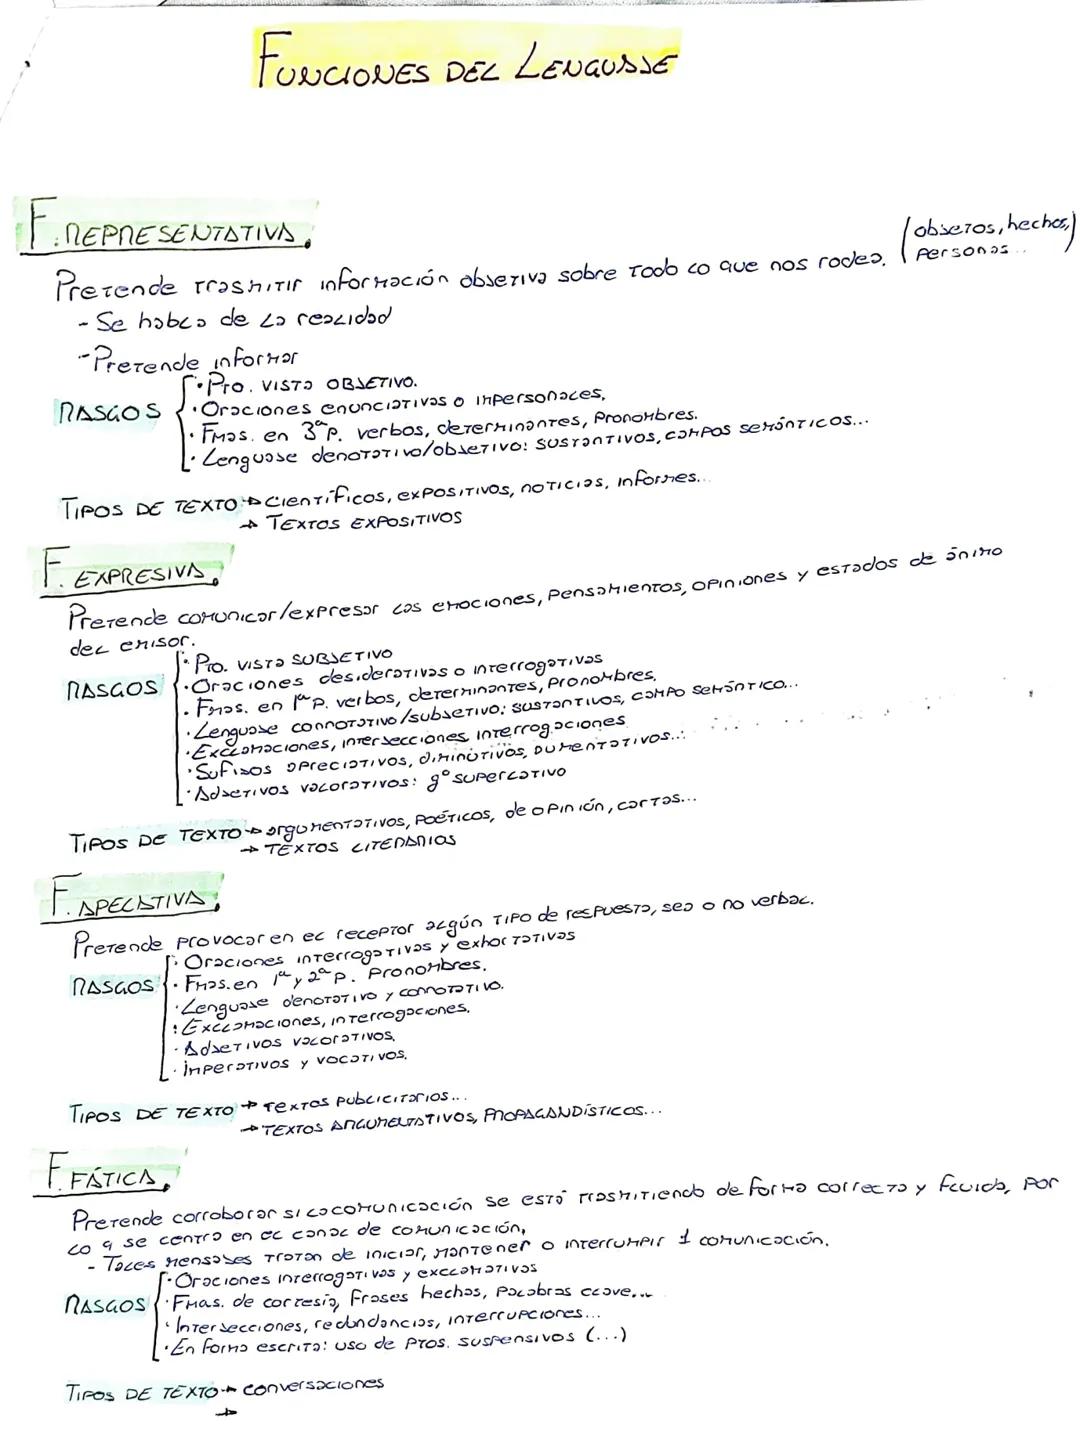 FUNCIONES DEL LENGUAJE
F. REPRESENTATIVA.
Pretende trasmitir información objetiva sobre todo lo que nos rodea. (objetos, hechos, personas...)
- Se habla de la realidad
- Pretende informar
RASGOS
· Pto. vista OBJETIVO.
· Oraciones enunciativas o impersonales,
· Fmas. en 3ª p. verbos, determinantes, pronombres.
· Lenguaje denotativo/objetivo: sustantivos, campos semánticos...
TIPOS DE TEXTO → científicos, expositivos, noticias, informes...
→ TEXTOS EXPOSITIVOS
F. EXPRESIVA.
Pretende comunicar/expresar las emociones, pensamientos, opiniones y estados de ánimo
del emisor.
RASGOS
· Pto. vista SUBJETIVO
· Oraciones desiderativas o interrogativas
· Fmas. en 1ª p. verbos, determinantes, pronombres,
· Lenguaje connotativo/subjetivo: sustantivos, campo semántico...
· Exclamaciones, interjecciones, interrogaciones
· Sufijos apreciativos, diminutivos, aumentativos...
· Adjetivos valorativos: gº superlativo
TIPOS DE TEXTO → argumentativos, poéticos, de opinión, cartas...
→ TEXTOS LITERARIOS
F. APELATIVA.
Pretende provocar en el receptor algún tipo de respuesta, sea o no verbal.
RASGOS
· Oraciones interrogativas y exhortativas
· Fmas. en 1ª y 2ª p. Pronombres.
· Lenguaje denotativo y connotativo.
· Exclamaciones, interrogaciones.
· Adjetivos valorativos.
· Imperativos y vocativos.
TIPOS DE TEXTO → textos publicitarios...
→ TEXTOS ARGUMENTATIVOS, PROPAGANDÍSTICOS...
F. FÁTICA.
Pretende corroborar si la comunicación se está trasmitiendo de forma correcta y fluida, por
lo q se centra en el canal de comunicación,
- Tales mensajes tratan de iniciar, mantener o interrumpir 1 comunicación.
RASGOS
· Oraciones interrogativas y exclamativas
· Fmas. de cortesía, frases hechas, palabras clave...
· Interjecciones, redundancias, interrupciones...
· En forma escrita: uso de ptos. suspensivos (...)
TIPOS DE TEXTO → conversaciones
→